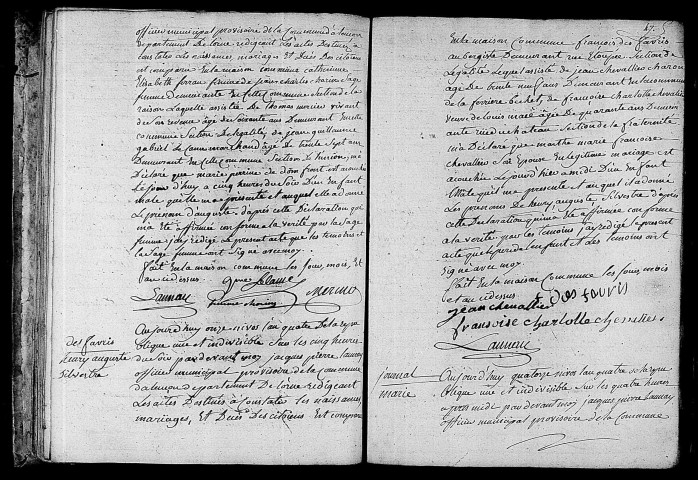 officier municipal provisoire de la Commune d'alencon
departement de l'orne redigeant les actes destinés à
constater les naissances, mariages et Deces des citoiens
est comparu en la maison commune catherine
Elisabeth femme de jean charles chorin sage
femme demeurante en cette Commune section de la
raison laquelle assistée de thomas mercier vivant
de son revenu agé de soixante ans demeurant en cette
commune section de l'egalité, de jean guillaume
gabriel marchand agé de trente sept ans
Demeurant en cette commune section, m'a
déclaré que marie perrine de dom front est accouchée
le jour d'huy a cinq heures du soir d'un enfant
male qu'elle m'a presenté et auquel elle a donné
le prenom d'auguste. d'après cette declaration que
m'a eté affirmée conforme a la verité par la sage
femme j'ay redigé le present acte que les temoins et
la sage femme ont signé avec moy.
fait en la maison commune les jour, mois, et
an cy dessus.
Launay femme chorin mercier
des favris
henry auguste
silvestre
Aujourd'huy onze nivos l'an quatre de la repu
blique une et indivisible sur les cinq heures
du soir par devant moy jacques pierre Launay
officier municipal provisoire de la commune
d'alencon departement de l'orne redigeant
les actes destinés à constater les naissances
mariages, et Deces des citoiens est comparu
47.
en la maison Commune françois des favris
aubergiste demeurant rue section de
l'egalité lequel assisté de jean chevallier charon
agé de trente ans demeurant en la commune
de la ferriere bechet, de françoise charlotte chevallier
veuve de louis agée de quarante ans demeurante
rue du chateau section de la fraternité
m'a declaré que marthe marie françoise
chevallier son epouse en legitime mariage est
accouchée le jourd'hier a midi d'un enfant
male qu'il me presente et auquel il a donné
les prenoms de henry auguste silvestre d'après
cette declaration qui m'a eté affirmée conforme
a la verité par les temoins j'ay redigé le present
acte que le pere de l'enfant et les temoins ont
signé avec moy.
fait en la maison Commune les jours mois
et an cy dessus.
jean chevallier des favris
françoise charlotte chevallier
Launay
journal
marie
Aujourd'huy quatorze nivos l'an quatre de la repu
blique une et indivisible sur les quatre heures
apres midi par devant moy jacques pierre launay
officier municipal provisoire de la Commune